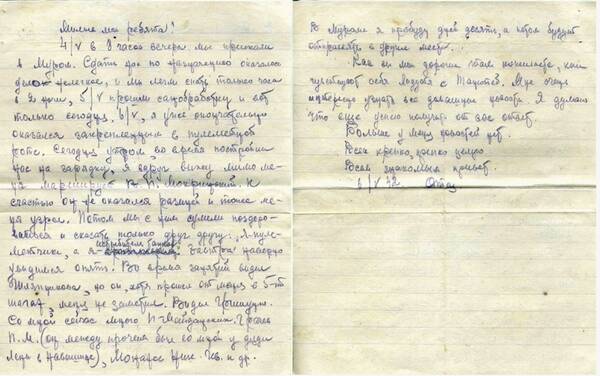 Милые мои ребята!
4/V в 8 часов вечера мы приехали
в Муром. Сдать нас по назначению оказалось
дело нелегкое, и мы легли спать только часа
в 2 ночи, 5/V прошли санобработку и вот
только сегодня, 6/V, я уже окончательно
оказался закрепленным в пулеметной
роте. Сегодня утром, во время построения
нас на зарядку, я вдруг вижу мимо ме-
ня марширует В. П. Мокрицкий. К
счастью он не оказался разиней и тоже ме-
ня узрел. Потом мы с ним сумели поздоро-
ваться и сказать только друг другу: „Я пуле-
метчик, а я истребитель танков". Завтра наверно
увидимся опять. Во время занятий видел
Шляпникова, но он, хотя прошел от меня в 5-ти
шагах, меня не заметил. Видел
Со мной сейчас много П-Майданских.
П. М. (он между прочим был со мной у дяди
Лёвы в Навашине), Ник. Ив. и др.
В Муроме я пробуду дней десять, а потом будут
отправлять в другие места.
Как вы мои дорогие там поживаете, как
чувствуют себя Людоба с Мне очень
интересно узнать все домашние новости. Я думаю
что еще успею получить от вас ответ.
Больше у меня новостей нет.
Всех крепко, крепко целую.
Всем знакомым привет.
6/V 42 Отец